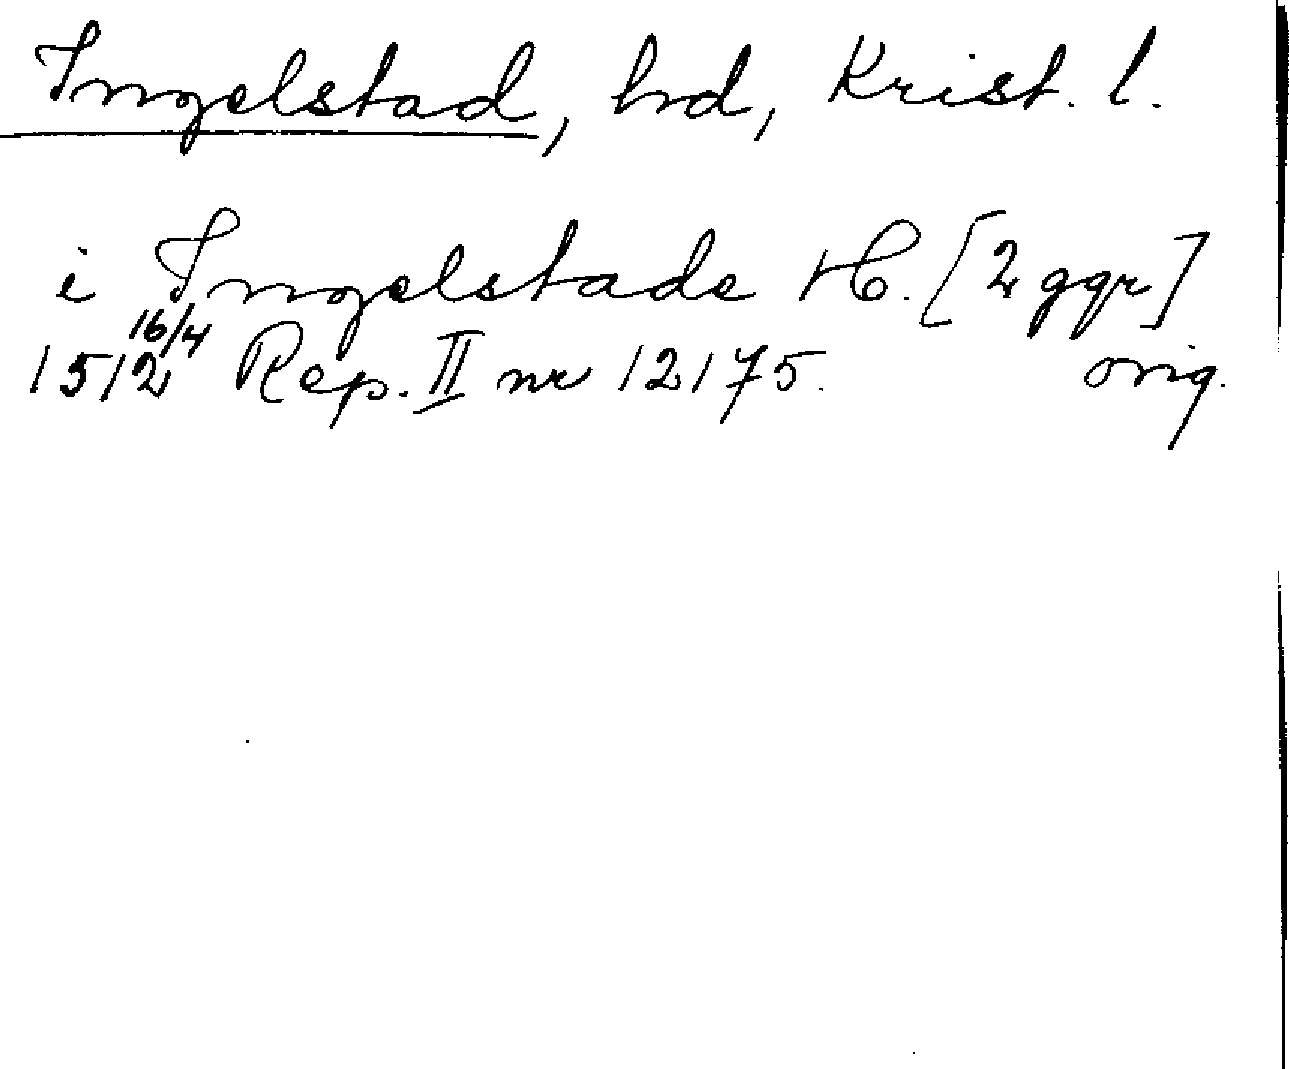 Ingelstad, hd, Krist. l.
i Ingelstade H. [2 ggr]
1512 16/4 Rep. II nr 12175. orig.